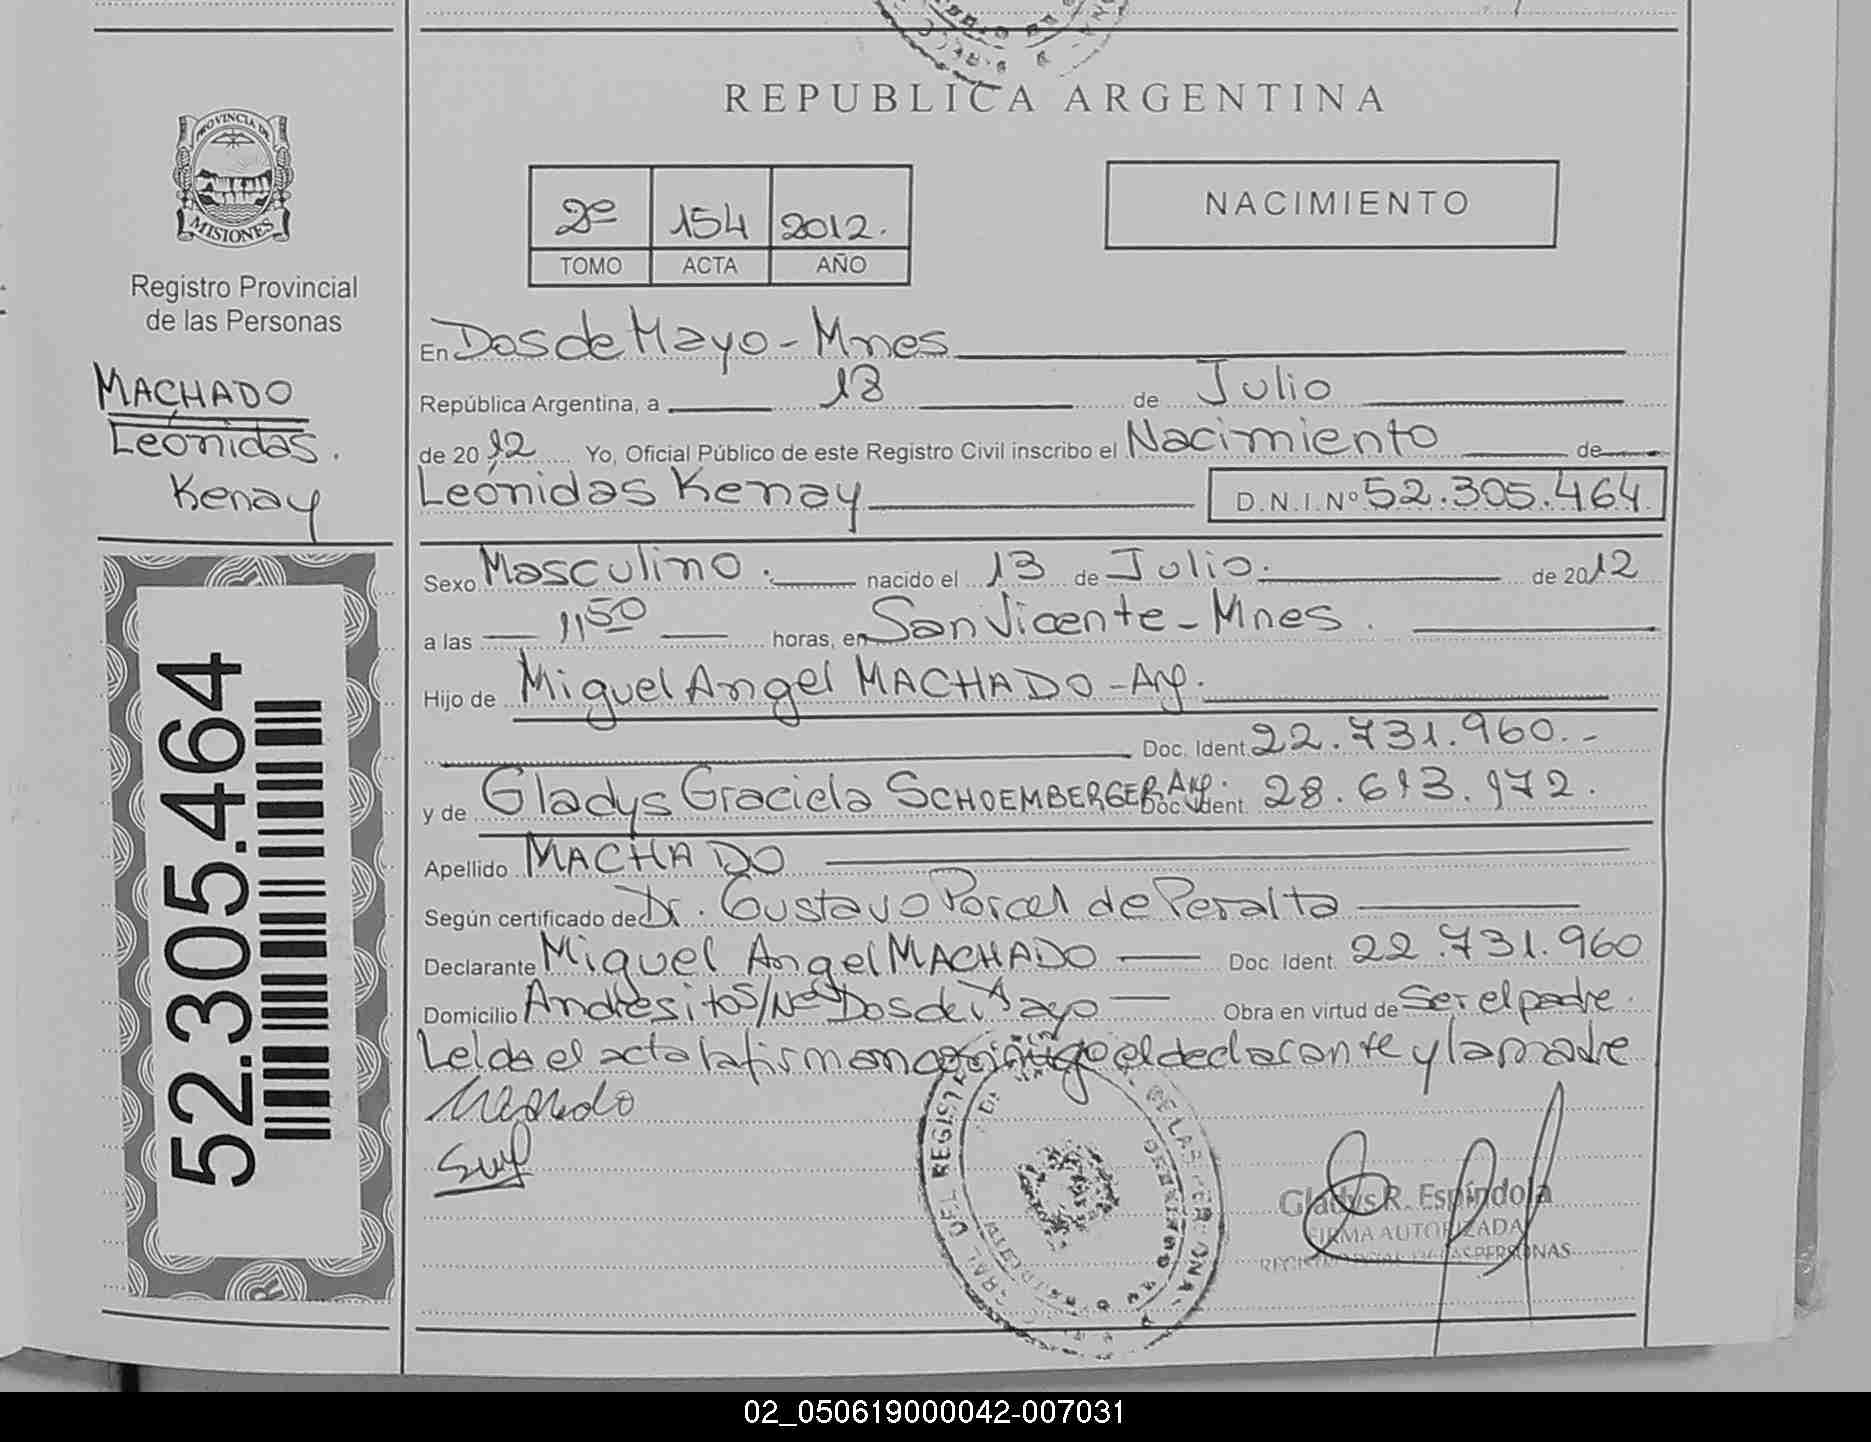 REPUBLICA ARGENTINA
PROVINCIA DE
MISIONES
Registro Provincial
de las Personas
MACHADO
Leónidas.
Kenay
52.305.464
2º 154 2012.
TOMO ACTA AÑO
NACIMIENTO
En Dos de Mayo - Mnes
República Argentina, a 18 de Julio
de 20 12 Yo, Oficial Público de este Registro Civil inscribo el Nacimiento de
Leónidas Kenay D.N.I.Nº 52.305.464
Sexo Masculino. nacido el 13 de Julio. de 2012
a las 11,50 horas, en San Vicente - Mnes.
Hijo de Miguel Angel MACHADO - Arg.
Doc. Ident. 22.731.960.-
y de Gladys Graciela SCHOEMBERGER Arg. Doc. Ident. 28.613.972.
Apellido MACHADO
Según certificado de Dr. Gustavo Porcel de Peralta
Declarante Miguel Angel MACHADO Doc. Ident. 22.731.960
Domicilio Andresito S/Nº Dos de Mayo Obra en virtud de Ser el padre.
Leída el acta la firman conmigo el declarante y la madre
Machado
Gladys R. Espíndola
FIRMA AUTORIZADA
DE LAS PERSONAS
02_050619000042-007031